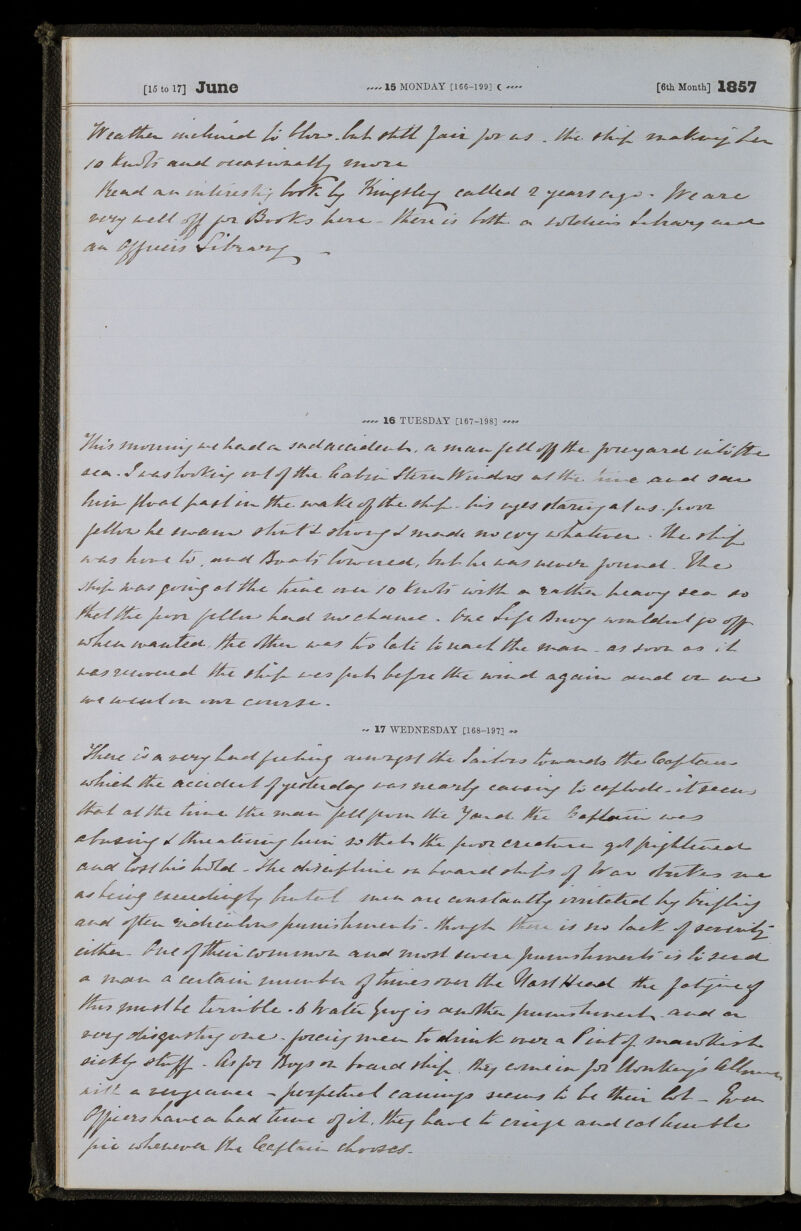 [15 to 17] June 15 MONDAY [166-199] ☾ [6th Month] 1857
Weather inclined to blow. but still fair for us. the ship making her
10 knots and occasionally more
Read an interesting book by Kingsley called 2 years ago. We are
very well off for Books here - there is both a soldiers Library and
an Officers Library -
16 TUESDAY [167-198]
This morning we had a sad accident, a man fell off the foreyard into the
sea. I was looking out of the Cabin Stern Windows at the time and saw
him float past in the wake of the ship. his eyes staring at us. poor
fellow he swam stout & strong & made no cry whatever. the ship
was hove to, and Boats lowered, but he was never found. The
ship was going at the time over 10 knots with a rather heavy sea so
that the poor fellow had no chance. One Life Buoy wouldnt go off
when wanted, the other was too late to reach the man. as soon as it
was recovered the ship was put before the wind again and on we
we went on our course.
17 WEDNESDAY [168-197]
There is a very bad feeling amongst the Sailors towards the Captain
which the accident of yesterday was nearly causing to explode - it seems
that at the time the man fell from the Yard the Captain was
abusing & threatening him so that the poor creature got frightened
and lost his hold - The discipline on board ships of War strikes me
as being exceedingly brutal men are constantly irritated by trifling
and often ridiculous punishments. though there is no lack of severity
either. One of their common and most severe punishments is to send
a man a certain number of times over the Mast Head the fatigue of
this must be terrible. 6 Water Grog is another punishment and a
very disgusting one. forcing men to drink over a Pint of mawkish
sickly stuff. As for Boys on board ship, they come in for Monkey's Allowance
with a vengeance - perpetual canings seems to be their lot - Even
Officers have a bad time of it, they have to cringe and eat humble
pie whenever the Captain chooses.